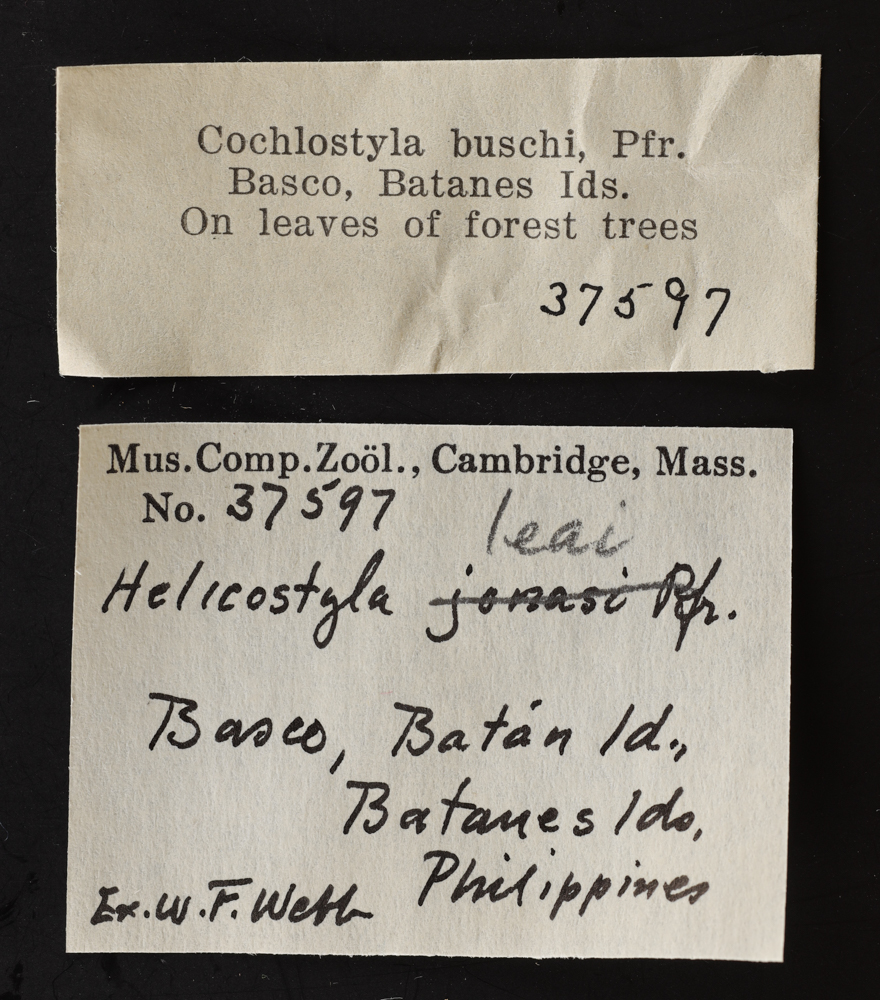 Cochlostyla buschi, Pfr.
Basco, Batanes Ids.
On leaves of forest trees
37597
Mus.Comp.Zoöl., Cambridge, Mass.
No. 37597
leai
Helicostyla jonasi Pfr.
Basco, Batán Id.,
Batanes Ids,
Philippines
Ex. W. F. Webb